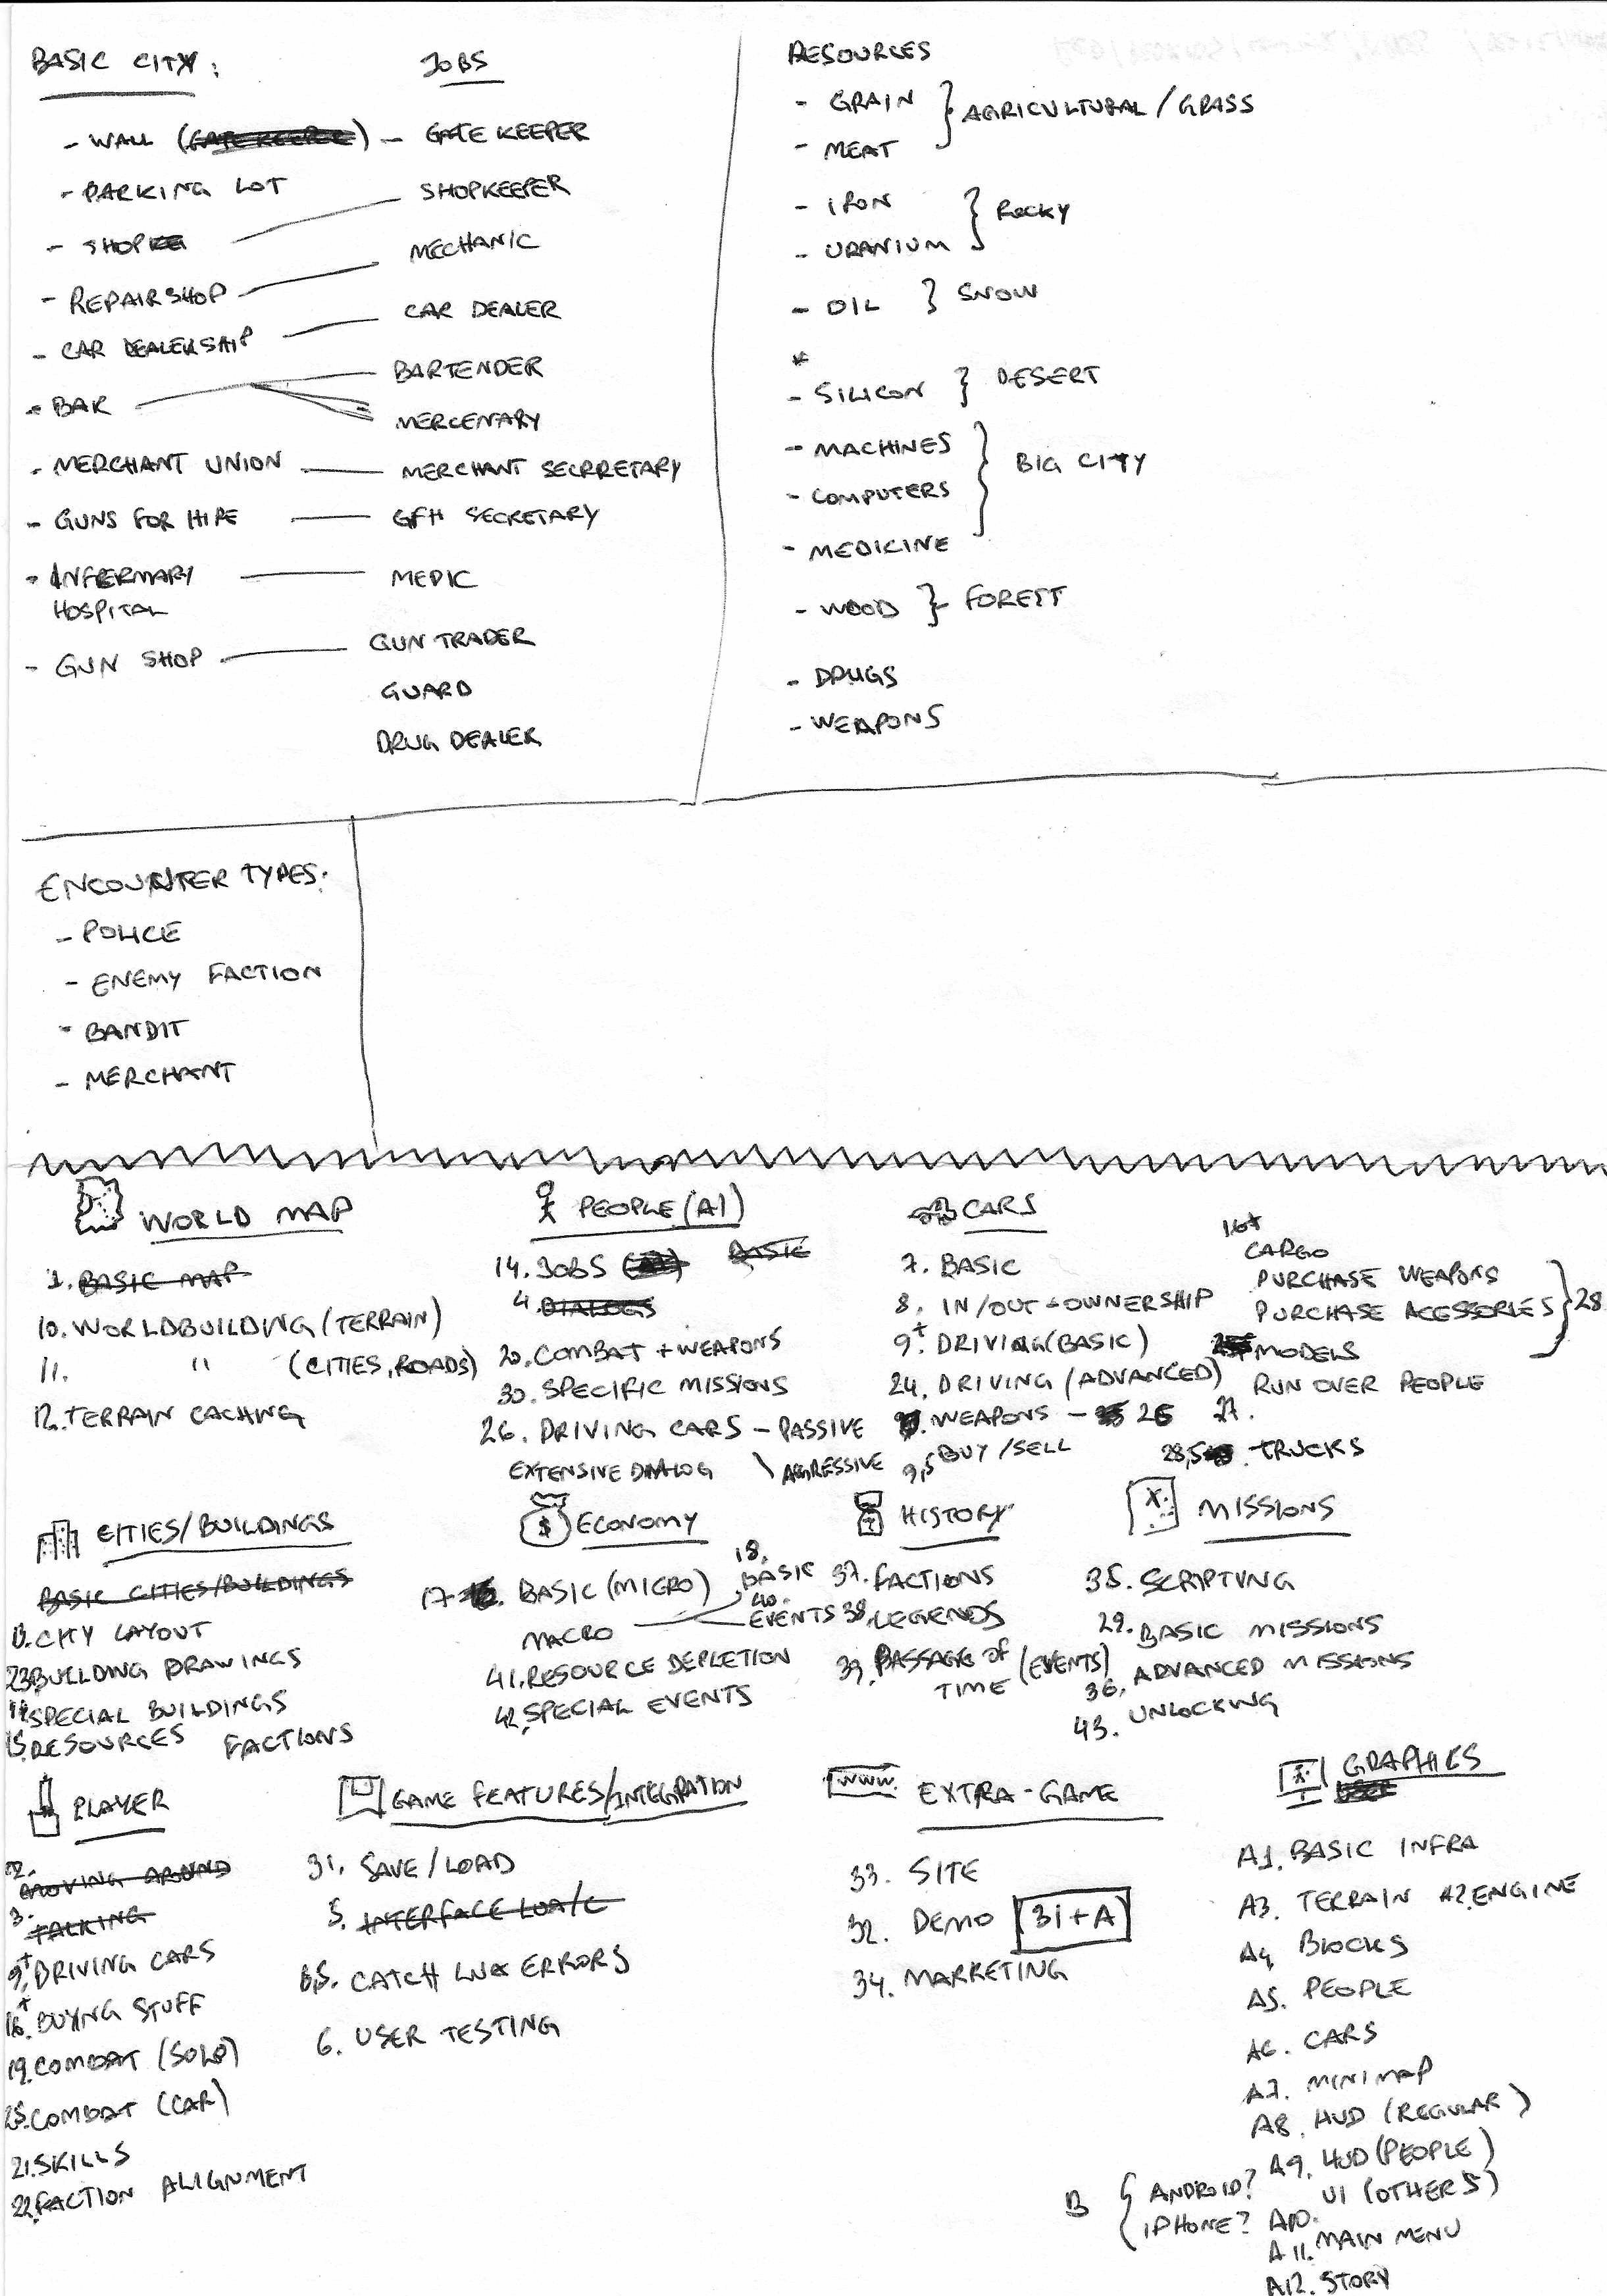 BASIC CITY:
- WALL (GATE KEEPER) -
- PARKING LOT
- SHOP
- REPAIRSHOP
- CAR DEALERSHIP
- BAR
- MERCHANT UNION
- GUNS FOR HIRE
- INFERMARY
HOSPITAL
- GUN SHOP
JOBS
GATE KEEPER
SHOPKEEPER
MECHANIC
CAR DEALER
BARTENDER
MERCENARY
MERCHANT SECRRETARY
GFH SECRETARY
MEDIC
GUN TRADER
GUARD
DRUG DEALER
RESOURCES
- GRAIN
- MEAT
AGRICULTURAL / GRASS
- IRON
- URANIUM
ROCKY
- OIL } SNOW
*
- SILICON } DESERT
- MACHINES
- COMPUTERS
- MEDICINE
BIG CITY
- WOOD } FOREST
- DRUGS
- WEAPONS
ENCOUNTER TYPES:
- POLICE
- ENEMY FACTION
- BANDIT
- MERCHANT
WORLD MAP
1. BASIC MAP
10. WORLDBUILDING (TERRAIN)
11. " (CITIES, ROADS)
12. TERRAIN CACHING
PEOPLE (AI)
14. JOBS BASIC
4. DIALOGS
20. COMBAT + WEAPONS
30. SPECIFIC MISSIONS
26. DRIVING CARS - PASSIVE
\ AGGRESSIVE
EXTENSIVE DIALOG
CARS
7. BASIC
8. IN/OUT + OWNERSHIP
9+ DRIVING (BASIC)
24. DRIVING (ADVANCED)
WEAPONS - 26
9,5 BUY/SELL
16+
CARGO
PURCHASE WEAPONS
PURCHASE ACESSORIES
MODELS
} 28
RUN OVER PEOPLE
27.
28,5 . TRUCKS
CITIES/BUILDINGS
BASIC CITIES/BUILDINGS
13. CITY LAYOUT
23. BUILDING DRAWINGS
SPECIAL BUILDINGS
15. RESOURCES FACTIONS
$ ECONOMY
17 BASIC (MICRO)
MACRO
18.
BASIC
40.
EVENTS
41. RESOURCE DEPLETION
42. SPECIAL EVENTS
HISTORY
37. FACTIONS
38. LEGENDS
39. PASSAGE OF
TIME (EVENTS)
X MISSIONS
35. SCRIPTING
29. BASIC MISSIONS
36. ADVANCED MISSIONS
43. UNLOCKING
PLAYER
MOVING AROUND
3.
TALKING
9+. DRIVING CARS
16+. BUYING STUFF
19. COMBAT (SOLO)
25. COMBAT (CAR)
21. SKILLS
22. FACTION ALIGNMENT
GAME FEATURES/INTEGRATION
31. SAVE/LOAD
5. INTERFACE LUA/C
CATCH LUA ERRORS
6. USER TESTING
WWW. EXTRA-GAME
33. SITE
32. DEMO 31+A
34. MARKETING
GRAPHICS
A1. BASIC INFRA
A3. TERRAIN A2. ENGINE
A4. BLOCKS
A5. PEOPLE
A6. CARS
A7. MINIMAP
A8. HUD (REGULAR)
A9. HUD (PEOPLE)
A10. UI (OTHERS)
A11. MAIN MENU
A12. STORY
B { ANDROID?
IPHONE?